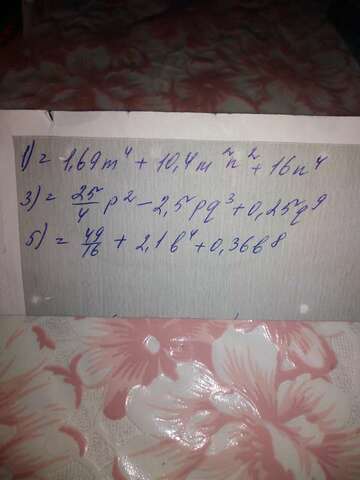 1) = 1,69m⁴ + 10,4m²n² + 16n⁴
3) = 25/4 p² - 2,5pq³ + 0,25q⁹
5) = 49/16 + 2,1b⁴ + 0,36b⁸